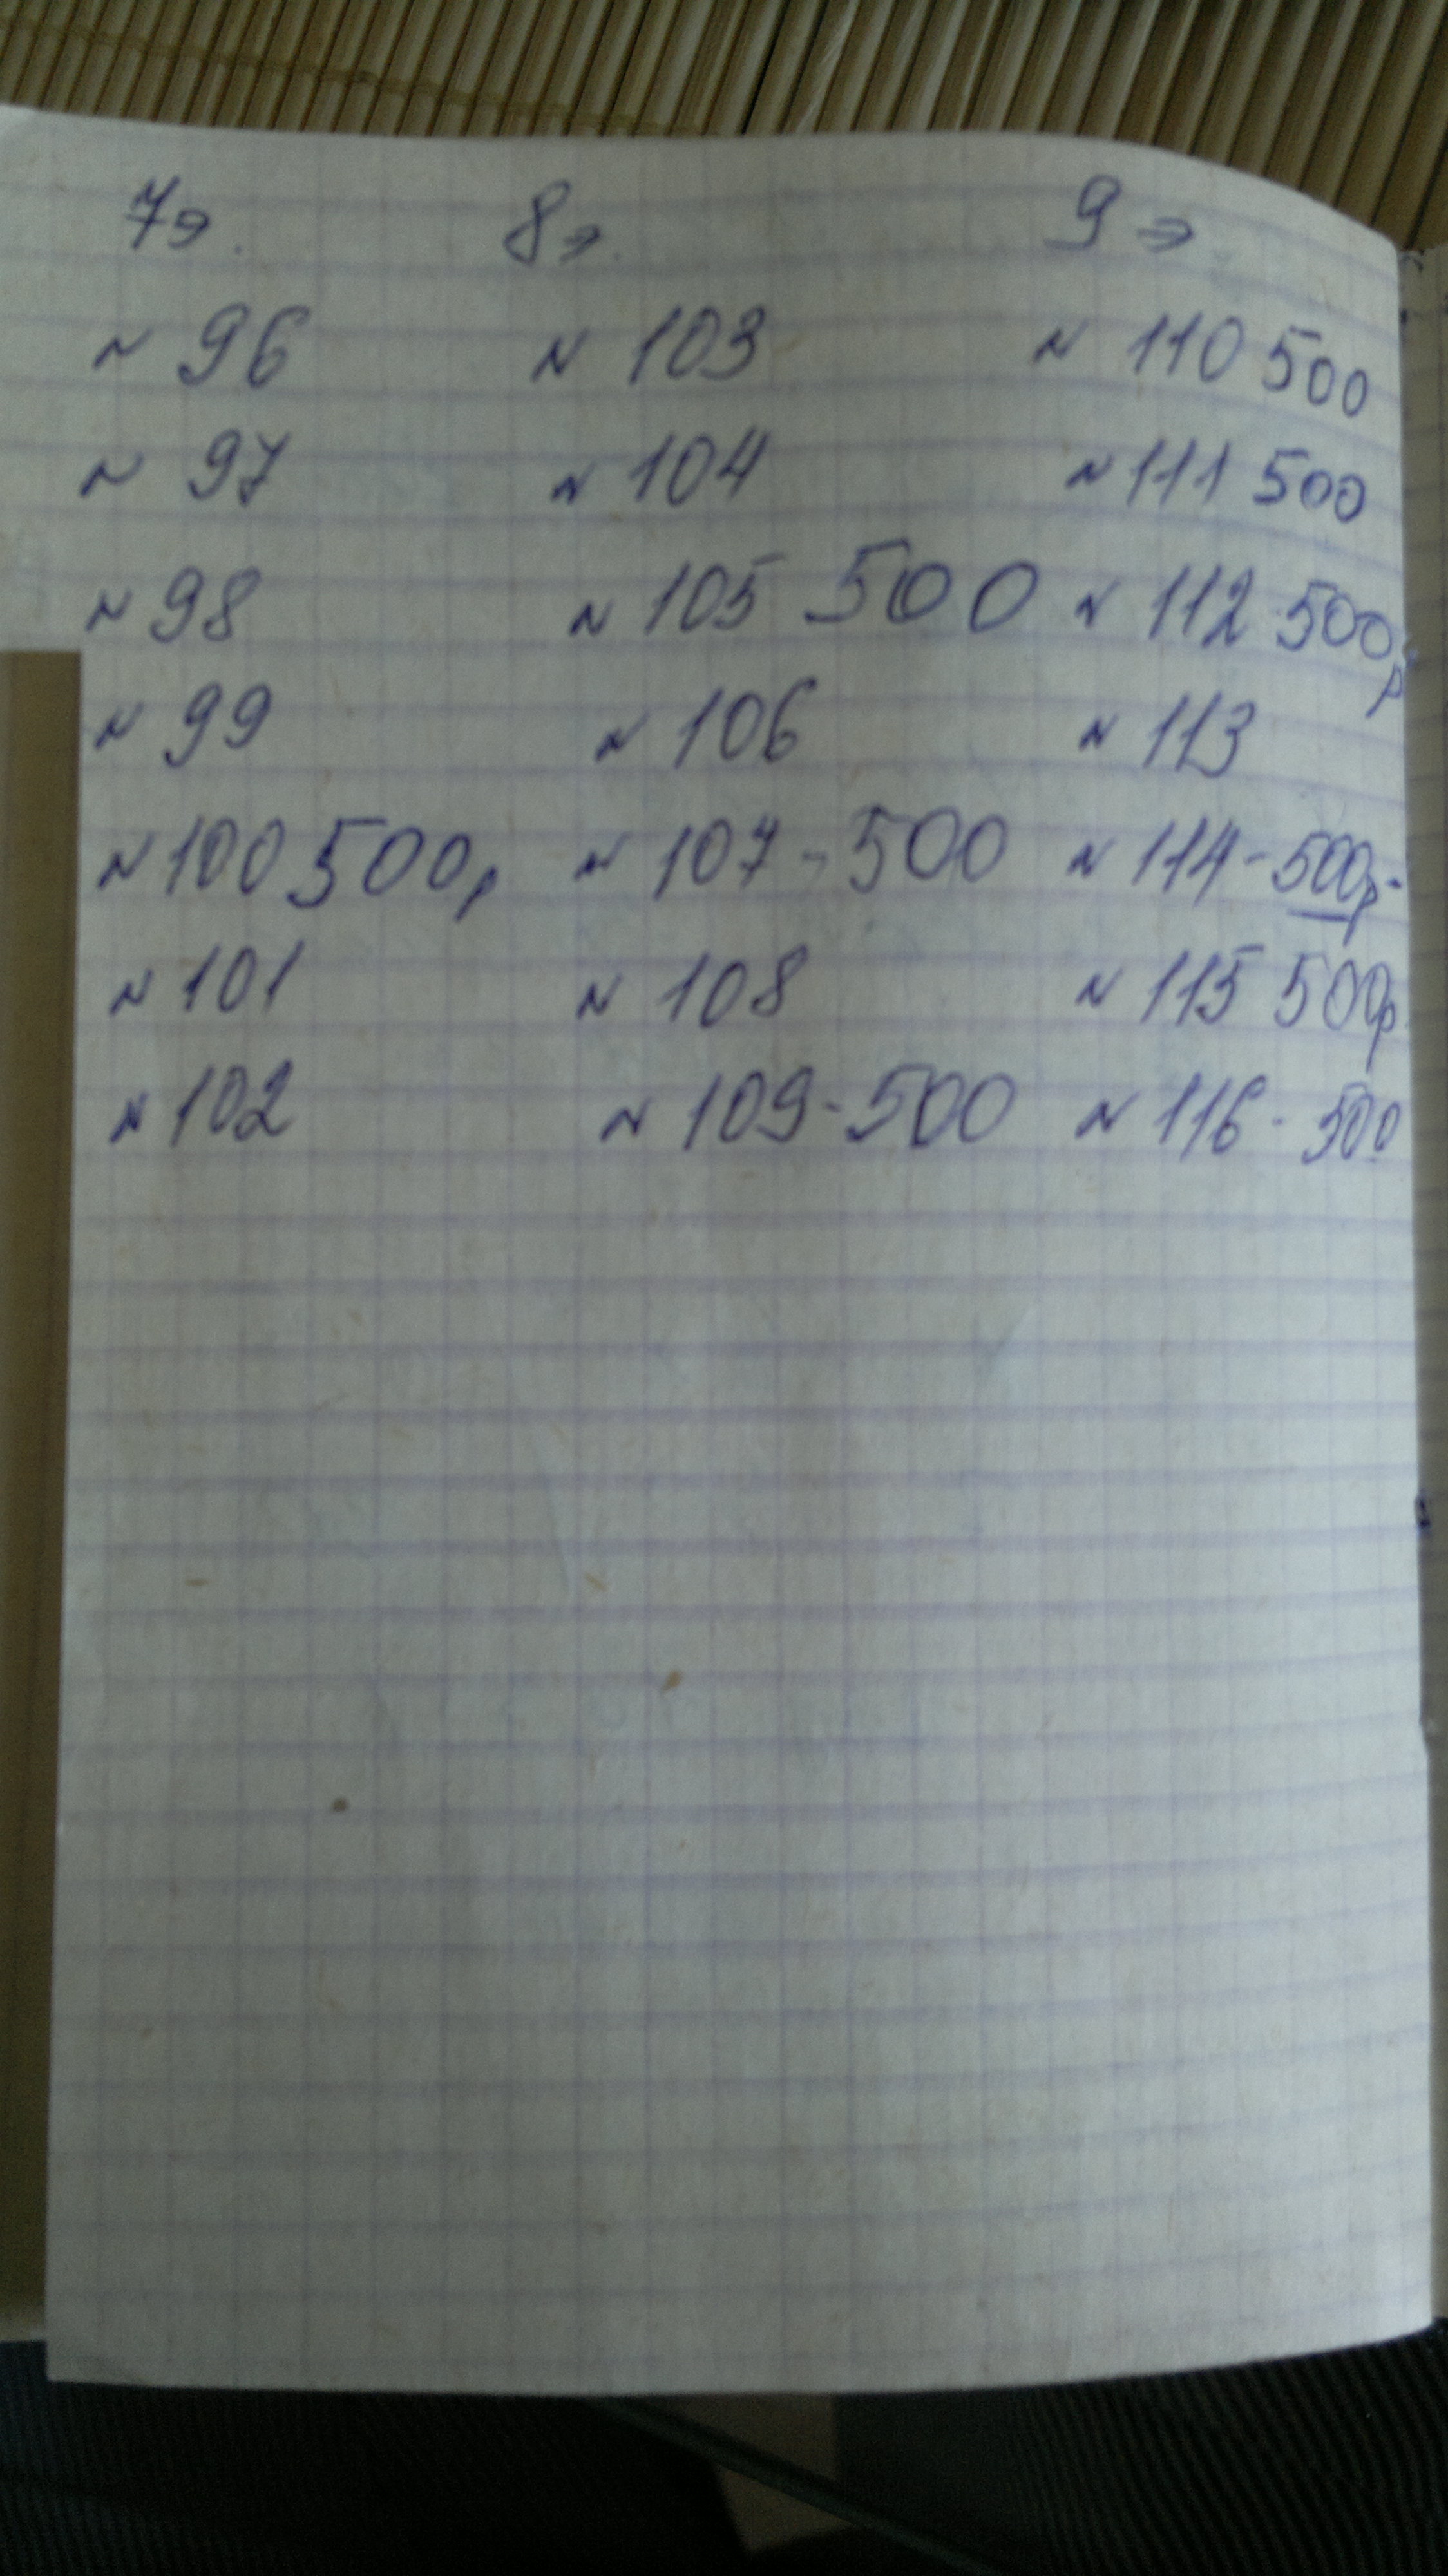 7э. 8э. 9э
№ 96 № 103 № 110 500
№ 97 № 104 № 111 500
№ 98 № 105 500 № 112 500р
№ 99 № 106 № 113
№ 100 500р № 107 - 500 № 114 - 500р.
№ 101 № 108 № 115 500р
№ 102 № 109 - 500 № 116 - 500